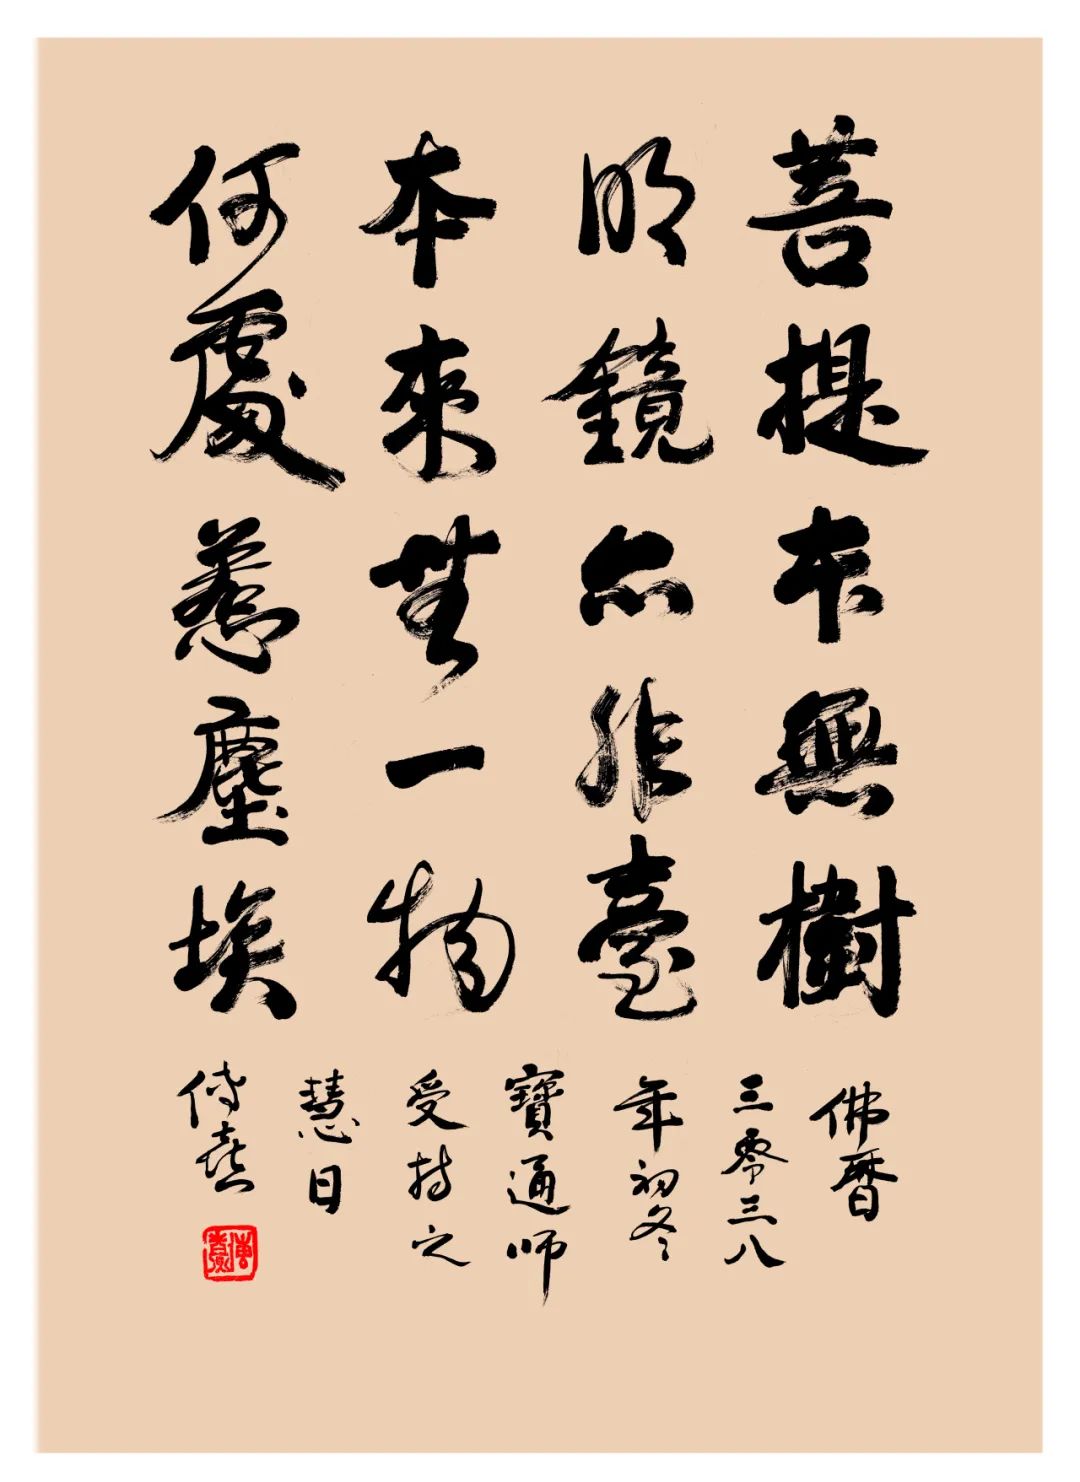 菩提本無樹
明鏡亦非臺
本來無一物
何處惹塵埃
佛曆
三零三八
年初冬
寶通師
受持之
慧日
傳喜
傳喜